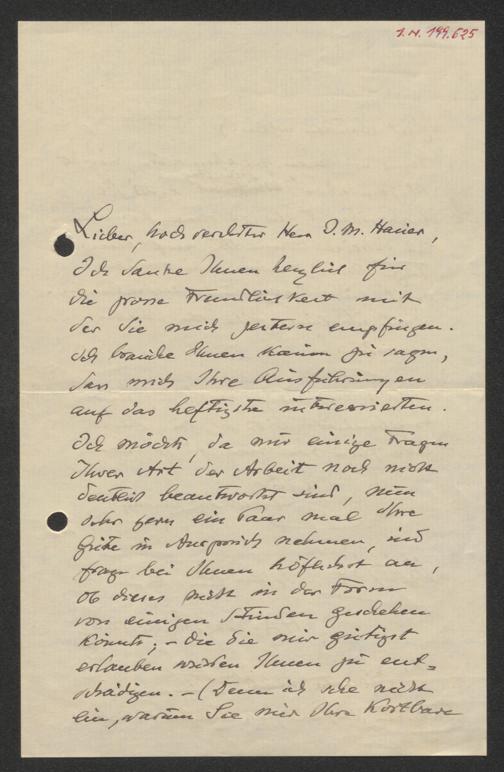 I.N. 199.625
Lieber, hochverehrter Herr J. M. Hauer,
Ich danke Ihnen herzlich für
die grosse Freundlichkeit mit
der Sie mich gestern empfingen.
Ich brauche Ihnen kaum zu sagen,
dass mich Ihre Ausführungen
auf das heftigste interessierten.
Ich möchte, da mir einige Fragen
Ihrer Art der Arbeit noch nicht
deutlich beantwortet sind, nun
sehr gern ein Paar mal Ihre
Güte in Anspruch nehmen, und
frage bei Ihnen höflichst an,
ob dieses nicht in der Form
von einigen Stunden geschehen
könnte; – die Sie mir gütigst
erlauben würden Ihnen zu ent=
schädigen. – (Denn ich sehe nicht
ein, warum Sie mir Ihre Kostbare